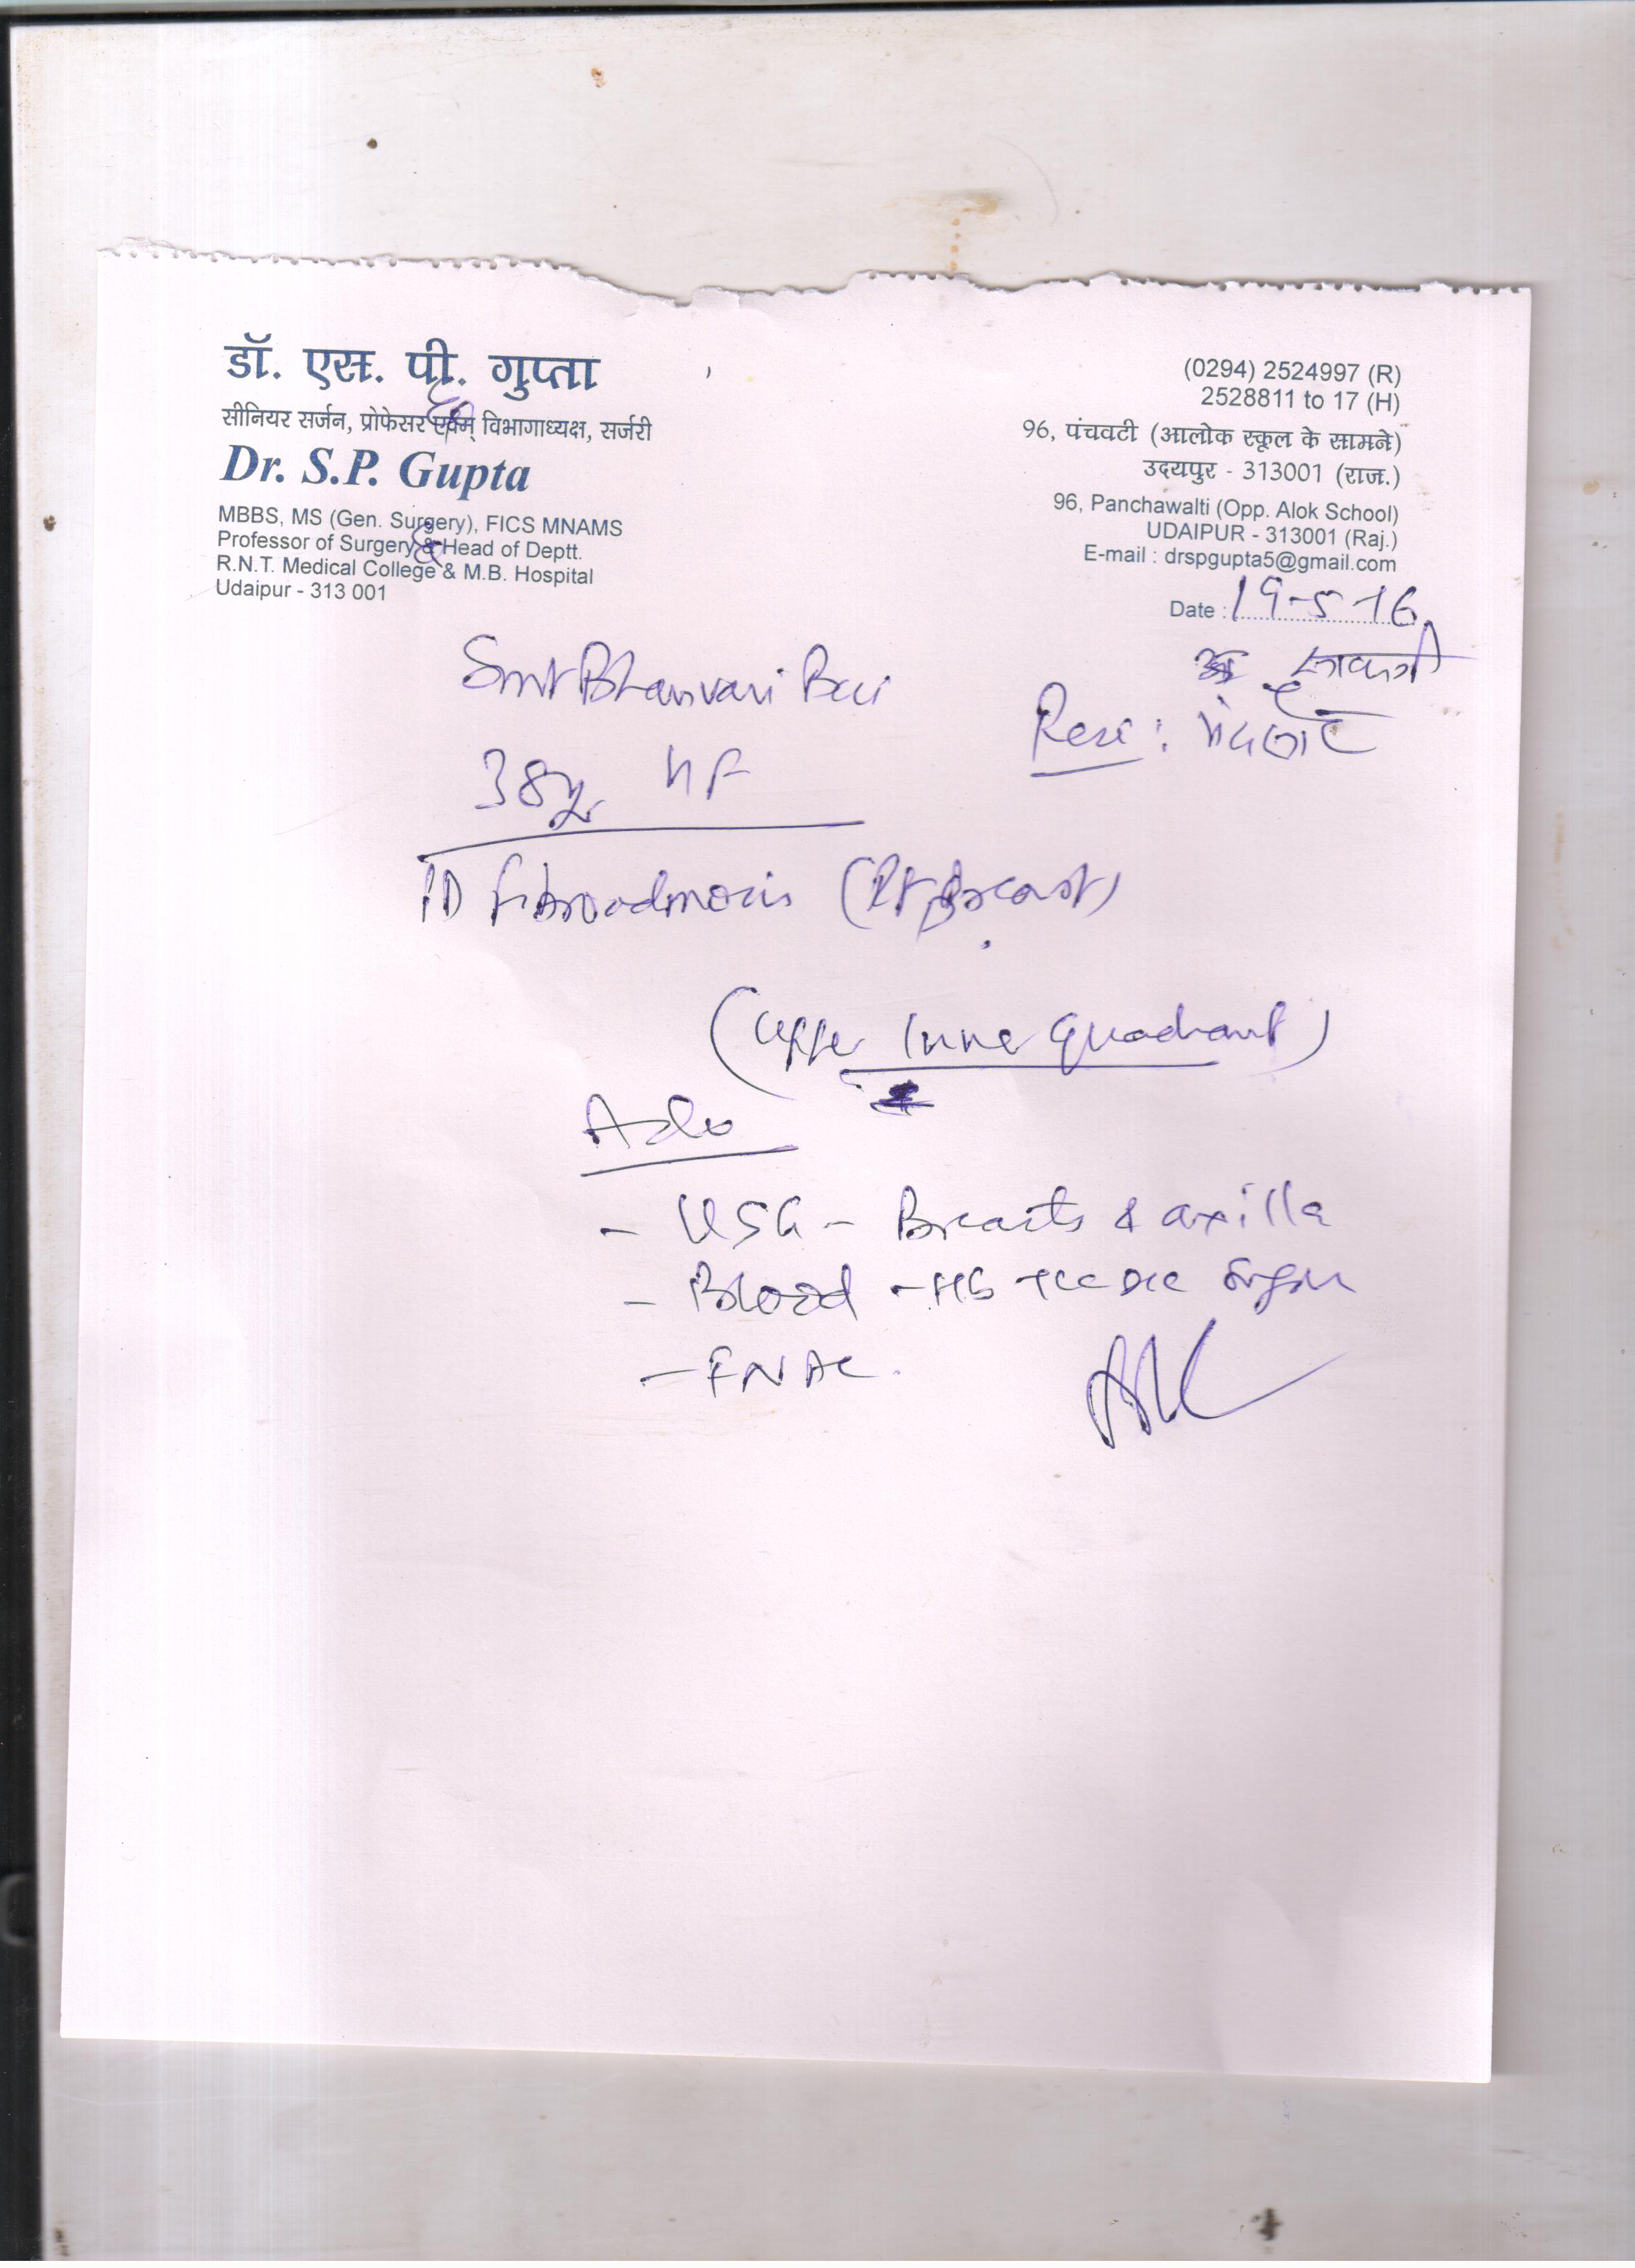 डॉ. एस. पी. गुप्ता
सीनियर सर्जन, प्रोफेसर एवम् विभागाध्यक्ष, सर्जरी
Dr. S.P. Gupta
MBBS, MS (Gen. Surgery), FICS MNAMS
Professor of Surgery & Head of Deptt.
R.N.T. Medical College & M.B. Hospital
Udaipur - 313 001
(0294) 2524997 (R)
2528811 to 17 (H)
96, पंचवटी (आलोक स्कूल के सामने)
उदयपुर - 313001 (राज.)
96, Panchawalti (Opp. Alok School)
UDAIPUR - 313001 (Raj.)
E-mail : drspgupta5@gmail.com
Date : 19-5-16
Smt Bhanvari Bai
Resi :
38yr HF
Fibroadnosis (Rt Breast)
(Upper Inner Quadrant)
Adv
- USG - Breasts & axilla
- Blood - Hb TLC DLC Sugar
- FNAC.